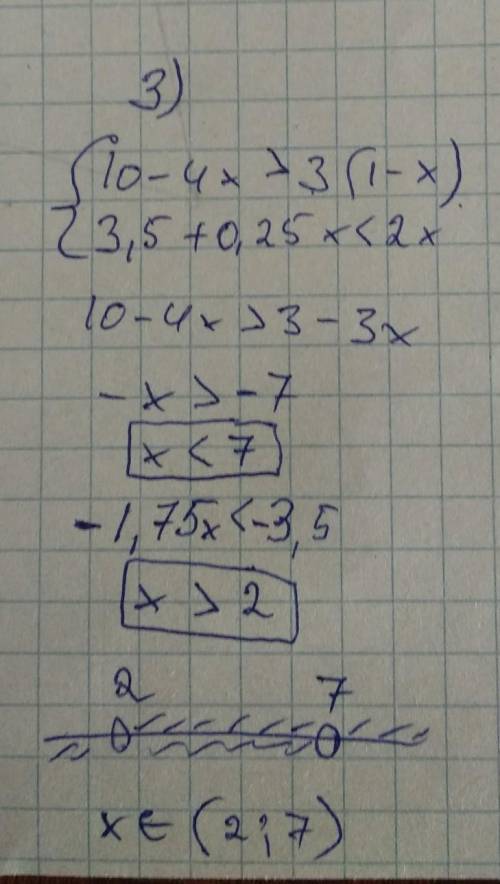 3)
{10-4x>3(1-x)
{3,5+0,25x<2x
10-4x>3-3x
-x>-7
x<7
-1,75x<-3,5
x>2
2 7
x∈(2;7)